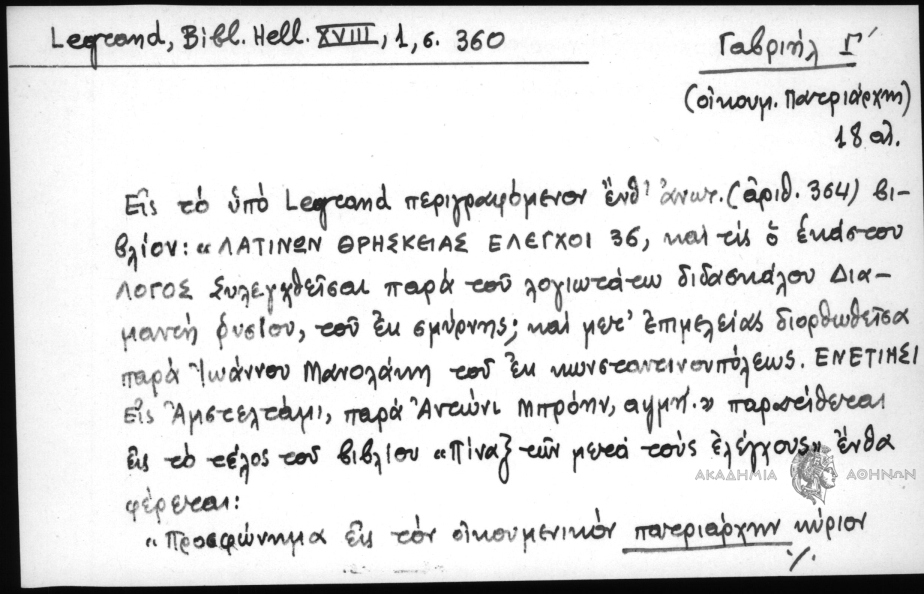 Legrand, Bibl. Hell. XVIII, 1, σ. 360
Γαβριήλ Γ΄
(οἰκουμ. Πατριάρχη)
18 αἰ.
Εἰς τό ὑπό Legrand περιγραφόμενον ἔνθ' ἀνωτ. (ἀριθ. 364) βι-
βλίον: «ΛΑΤΙΝΩΝ ΘΡΗΣΚΕΙΑΣ ΕΛΕΓΧΟΙ 36, καί τίς ὁ ἑκάστου
ΛΟΓΟΣ Συλεγχθεῖσαι παρά τοῦ λογιωτάτω διδασκάλου Δια-
μαντῆ ῥυσίου, τοῦ ἐκ σμύρνης; καί μετ' ἐπιμελείας διορθωθεῖσα
παρά Ἰωάννου Μανολάκη τοῦ ἐκ κωνσταντινουπόλεως. ΕΝΕΤΙΗΣΙ
Εἰς Ἀμστελτάμι, παρά Ἀντώνι Μπρόην, αψμή.» παρατίθεται
εἰς τό τέλος τοῦ βιβλίου «Πίναξ τῶν μετά τούς ἐλέγχους» ἔνθα
φέρεται:
«Προσφώνημα εἰς τόν οἰκουμενικόν πατριάρχην κύριον
./.
ΑΚΑΔΗΜΙΑ ΑΘΗΝΩΝ